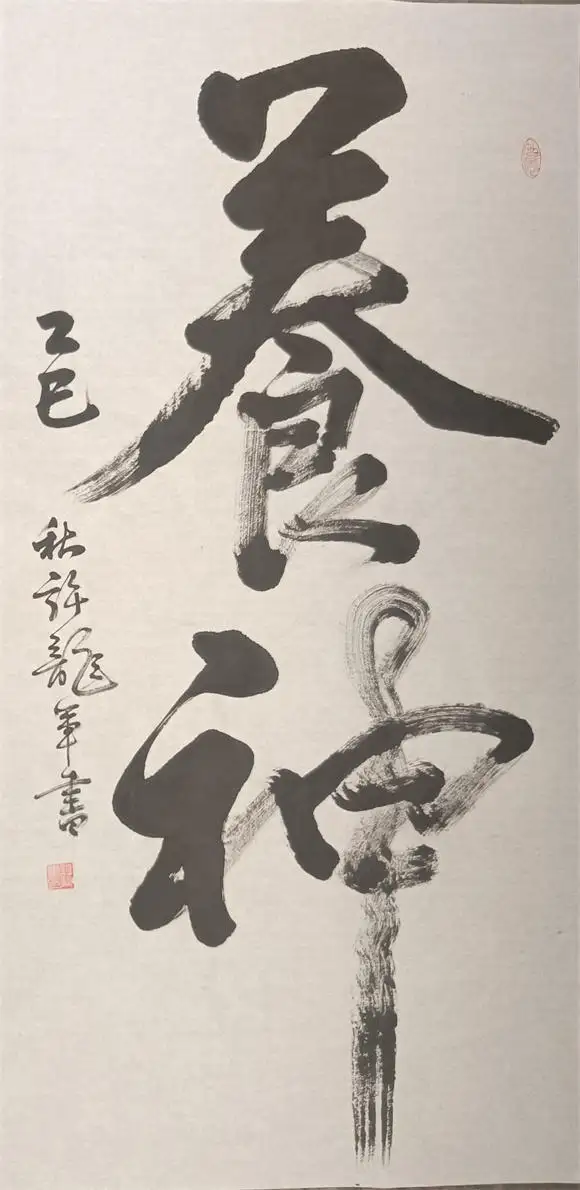 養神
乙巳
秋許龍年書